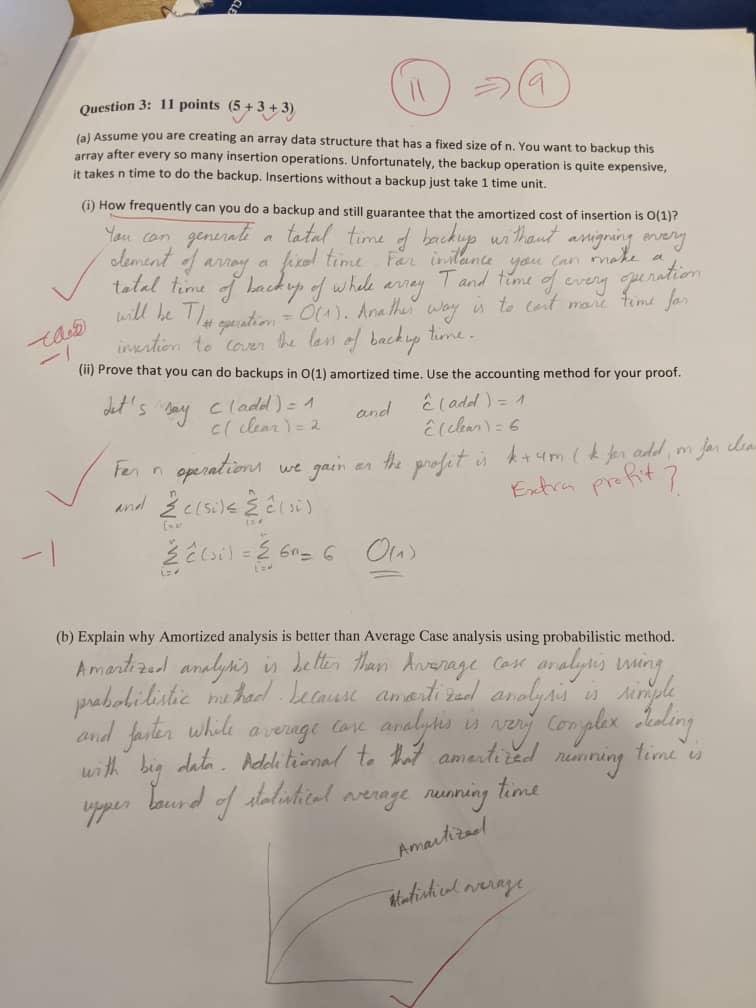 CLE
11 ⇒ 9
Question 3: 11 points (5 + 3 + 3)
(a) Assume you are creating an array data structure that has a fixed size of n. You want to backup this
array after every so many insertion operations. Unfortunately, the backup operation is quite expensive,
it takes n time to do the backup. Insertions without a backup just take 1 time unit.
(i) How frequently can you do a backup and still guarantee that the amortized cost of insertion is O(1)?
You can generate a total time of backup without assigning every
element of array a fixed time. For instance you can make a
total time of backup of whole array T and time of every operation
will be T/# operation = O(1). Another way is to cost more time for
-1
insertion to cover the loss of backup time.
(ii) Prove that you can do backups in O(1) amortized time. Use the accounting method for your proof.
Let's say c(add) = 1 and ĉ(add) = 1
c(clear) = 2 ĉ(clear) = 6
For n operations we gain on the profit is k+4m (k for add, m for clea
Extra profit?
and Σ c(si) ≤ Σ ĉ(si)
-1
Σ ĉ(si) = Σ 6n = 6 O(1)
(b) Explain why Amortized analysis is better than Average Case analysis using probabilistic method.
Amortized analysis is better than Average Case analysis using
probabilistic method. because amortized analysis is simple
and faster while average case analysis is very complex dealing
with big data. Additional to that amortized running time is
upper bound of statistical average running time
Amortized
statistical average